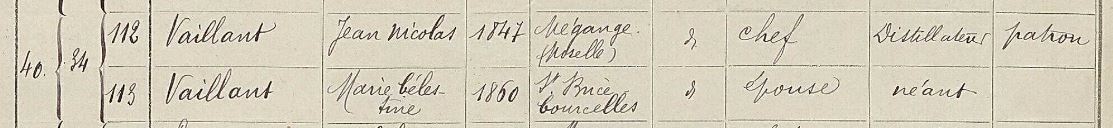 40. 34 112 Vaillant Jean Nicolas 1847 Mégange. (Moselle) d chef Distillateur patron
113 Vaillant Marie Céles-
tine 1860 St Brice
Courcelles d épouse néant